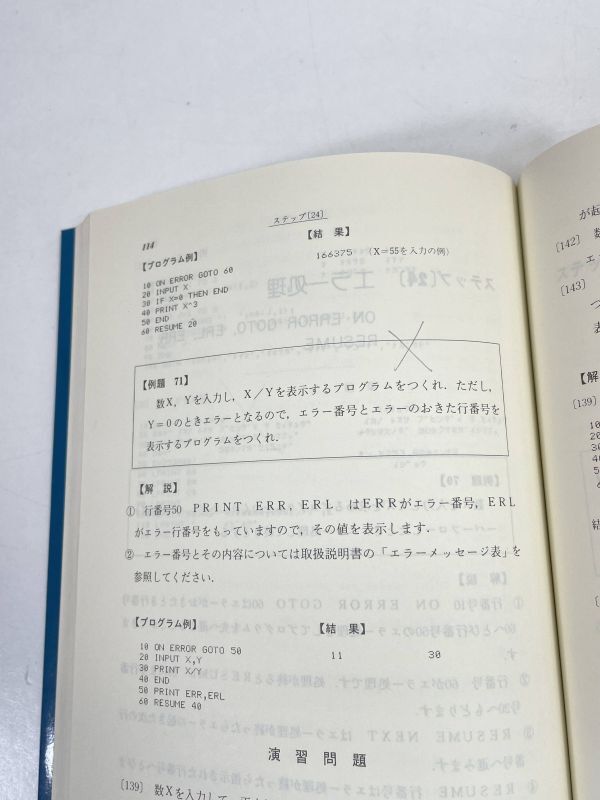 ステップ[24]
114
【結 果】
【プログラム例】
166375 (X=55を入力の例)
10 ON ERROR GOTO 60
20 INPUT X
30 IF X=0 THEN END
40 PRINT X^3
50 END
60 RESUME 20
【例題 71】
数X, Yを入力し, X/Yを表示するプログラムをつくれ. ただし,
Y=0のときエラーとなるので, エラー番号とエラーのおきた行番号を
表示するプログラムをつくれ.
【解 説】
① 行番号50 PRINT, ERR, ERL はERRがエラー番号, ERL
がエラー行番号をもっていますので, その値を表示します.
② エラー番号とその内容については取扱説明書の「エラーメッセージ表」を
参照してください.
【プログラム例】
【結 果】
10 ON ERROR GOTO 50
20 INPUT X,Y
30 PRINT X/Y
40 END
50 PRINT ERR,ERL
60 RESUME 40
11 30
演 習 問 題
[139] 数Xを入力して,
が起
[142] 数
エ
[143]
つ
表
【解
[139]
10
20
30
40
50
結